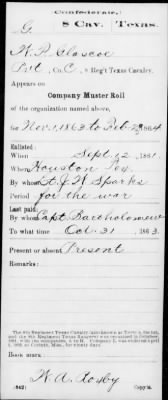 Confederate.
G
8 Cav.
Texas.
Pvt, Co. C, 8 Reg't Texas Cavalry.
Appears on
Company Muster Roll
of the organization named above,
for Nov. 1, 1863 to Feb 29, 1864
Enlisted:
When Sept. 12, 1861.
Where Houston Tex
By whom Lt. J. W. Sparks
Period for the war
Last paid:
By whom Capt. Bartholomew
To what time Oct. 31, 1863.
Present or absent Present
Remarks:
Book mark:
(642)
Copyist.